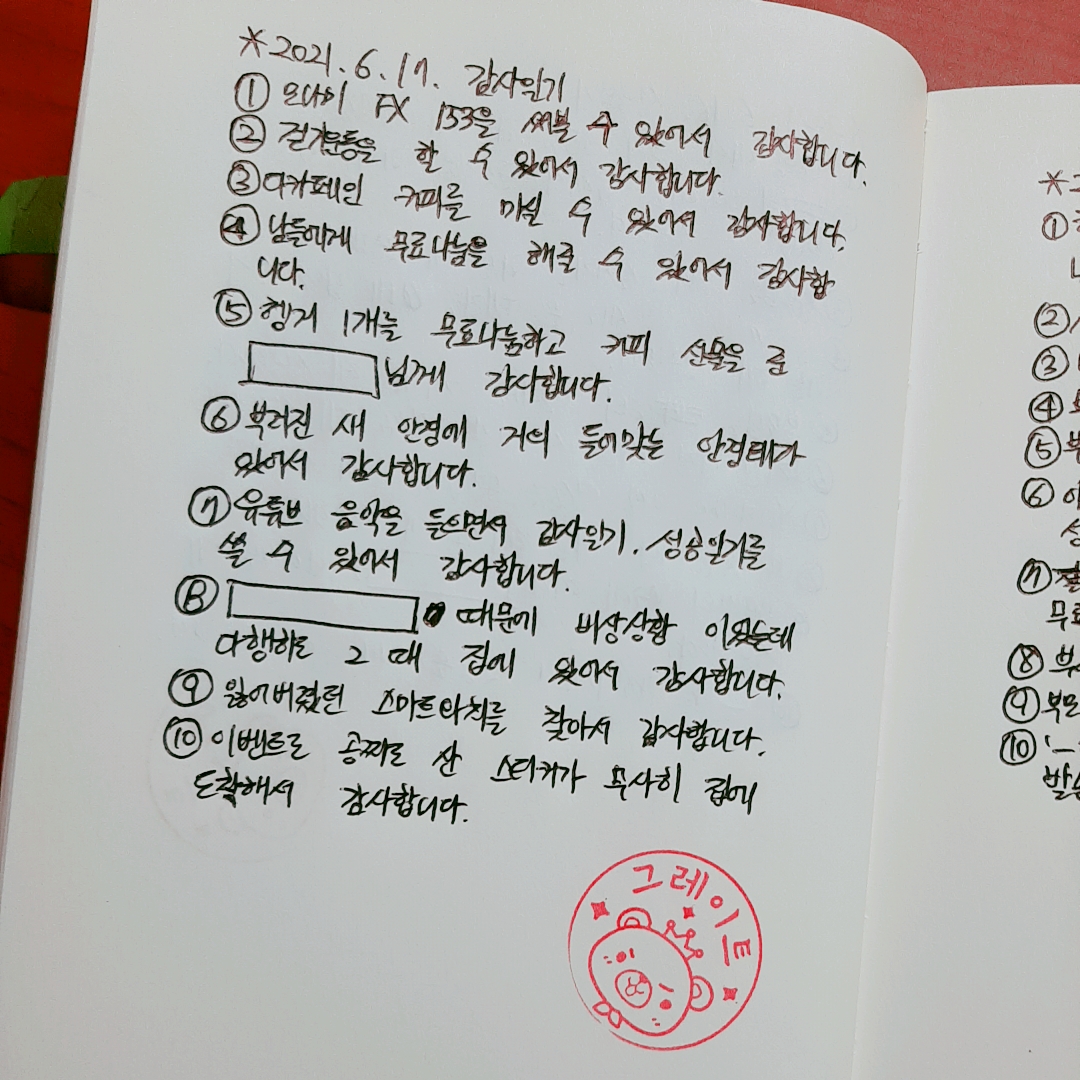 *2021. 6. 17. 감사일기
① 모나미 FX 153을 써볼 수 있어서 감사합니다.
② 걷기운동을 할 수 있어서 감사합니다.
③ 디카페인 커피를 마실 수 있어서 감사합니다.
④ 남들에게 무료나눔을 해줄 수 있어서 감사합
니다.
⑤ 헹거 1개를 무료나눔하고 커피 선물을 준
님께 감사합니다.
⑥ 부러진 새 안경에 거의 들어맞는 안경테가
있어서 감사합니다.
⑦ 유튜브 음악을 들으면서 감사일기. 성공일기를
쓸 수 있어서 감사합니다.
⑧ 때문에 비상상황 이었는데
다행히도 그 때 집에 있어서 감사합니다.
⑨ 잃어버렸던 스마트와치를 찾아서 감사합니다.
⑩ 이벤트로 공짜로 산 스티커가 무사히 집에
도착해서 감사합니다.
그레이트
*2
①
②
③
④
⑤
⑥
⑦
무료
⑧
⑨ 부모
⑩